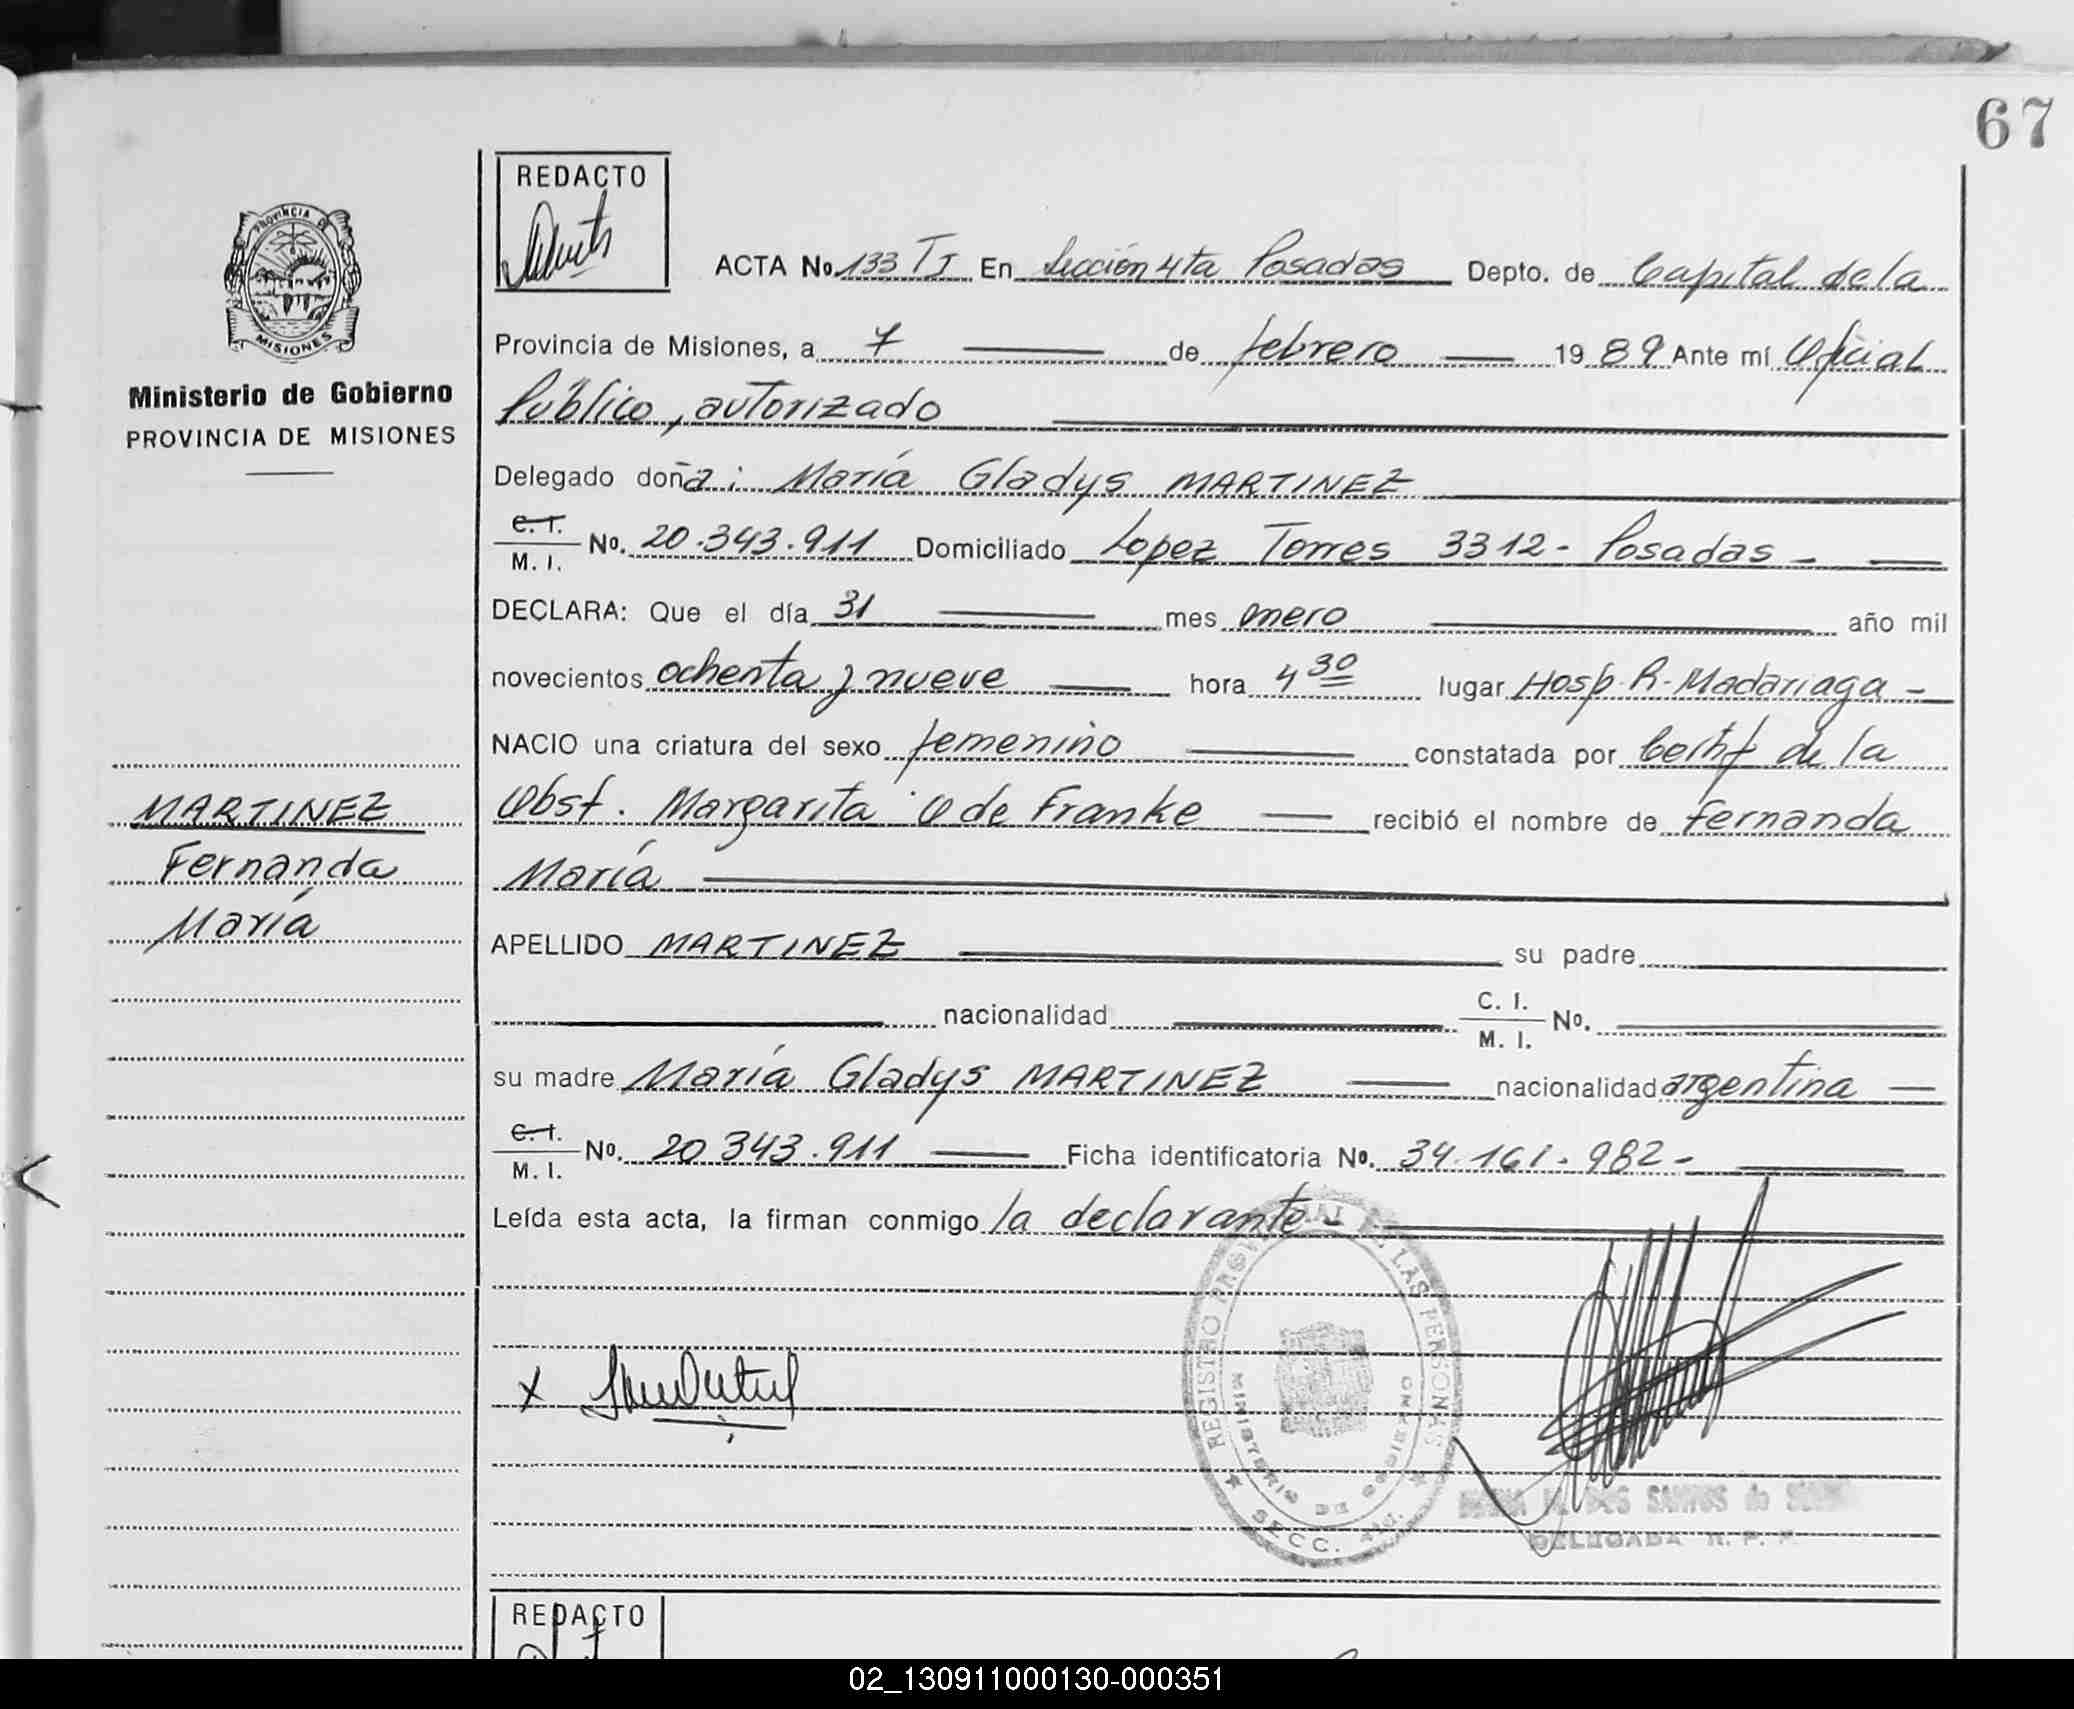 67
REDACTO
PROVINCIA DE
MISIONES
Ministerio de Gobierno
PROVINCIA DE MISIONES
MARTINEZ
Fernanda
María
ACTA No. 133 TI En Sección 4ta Posadas Depto. de Capital de la
Provincia de Misiones, a 7 de febrero 1989 Ante mí Oficial
Público, autorizado
Delegado doña: María Gladys MARTINEZ
C. I.
M. I. No. 20.343.911 Domiciliado Lopez Torres 3312- Posadas -
DECLARA: Que el día 31 mes enero año mil
novecientos ochenta y nueve hora 4 30 lugar Hosp. R. Madariaga -
NACIO una criatura del sexo femenino constatada por Certif de la
Obst. Margarita O de Franke recibió el nombre de Fernanda
María
APELLIDO MARTINEZ su padre
nacionalidad C. I.
M. I. No.
su madre María Gladys MARTINEZ nacionalidad argentina
C. I.
M. I. No. 20 343.911 Ficha identificatoria No. 34.161.982-
Leída esta acta, la firman conmigo la declarante -
REGISTRO PROVINCIAL DE LAS PERSONAS
MINISTERIO DE GOBIERNO
SECC. 4ta.
x
DOS SANTOS de
DELEGADA R. P. P.
REDACTO
02_130911000130-000351